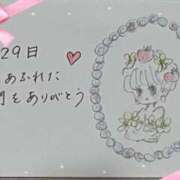 29日
あふれた
をありがとう